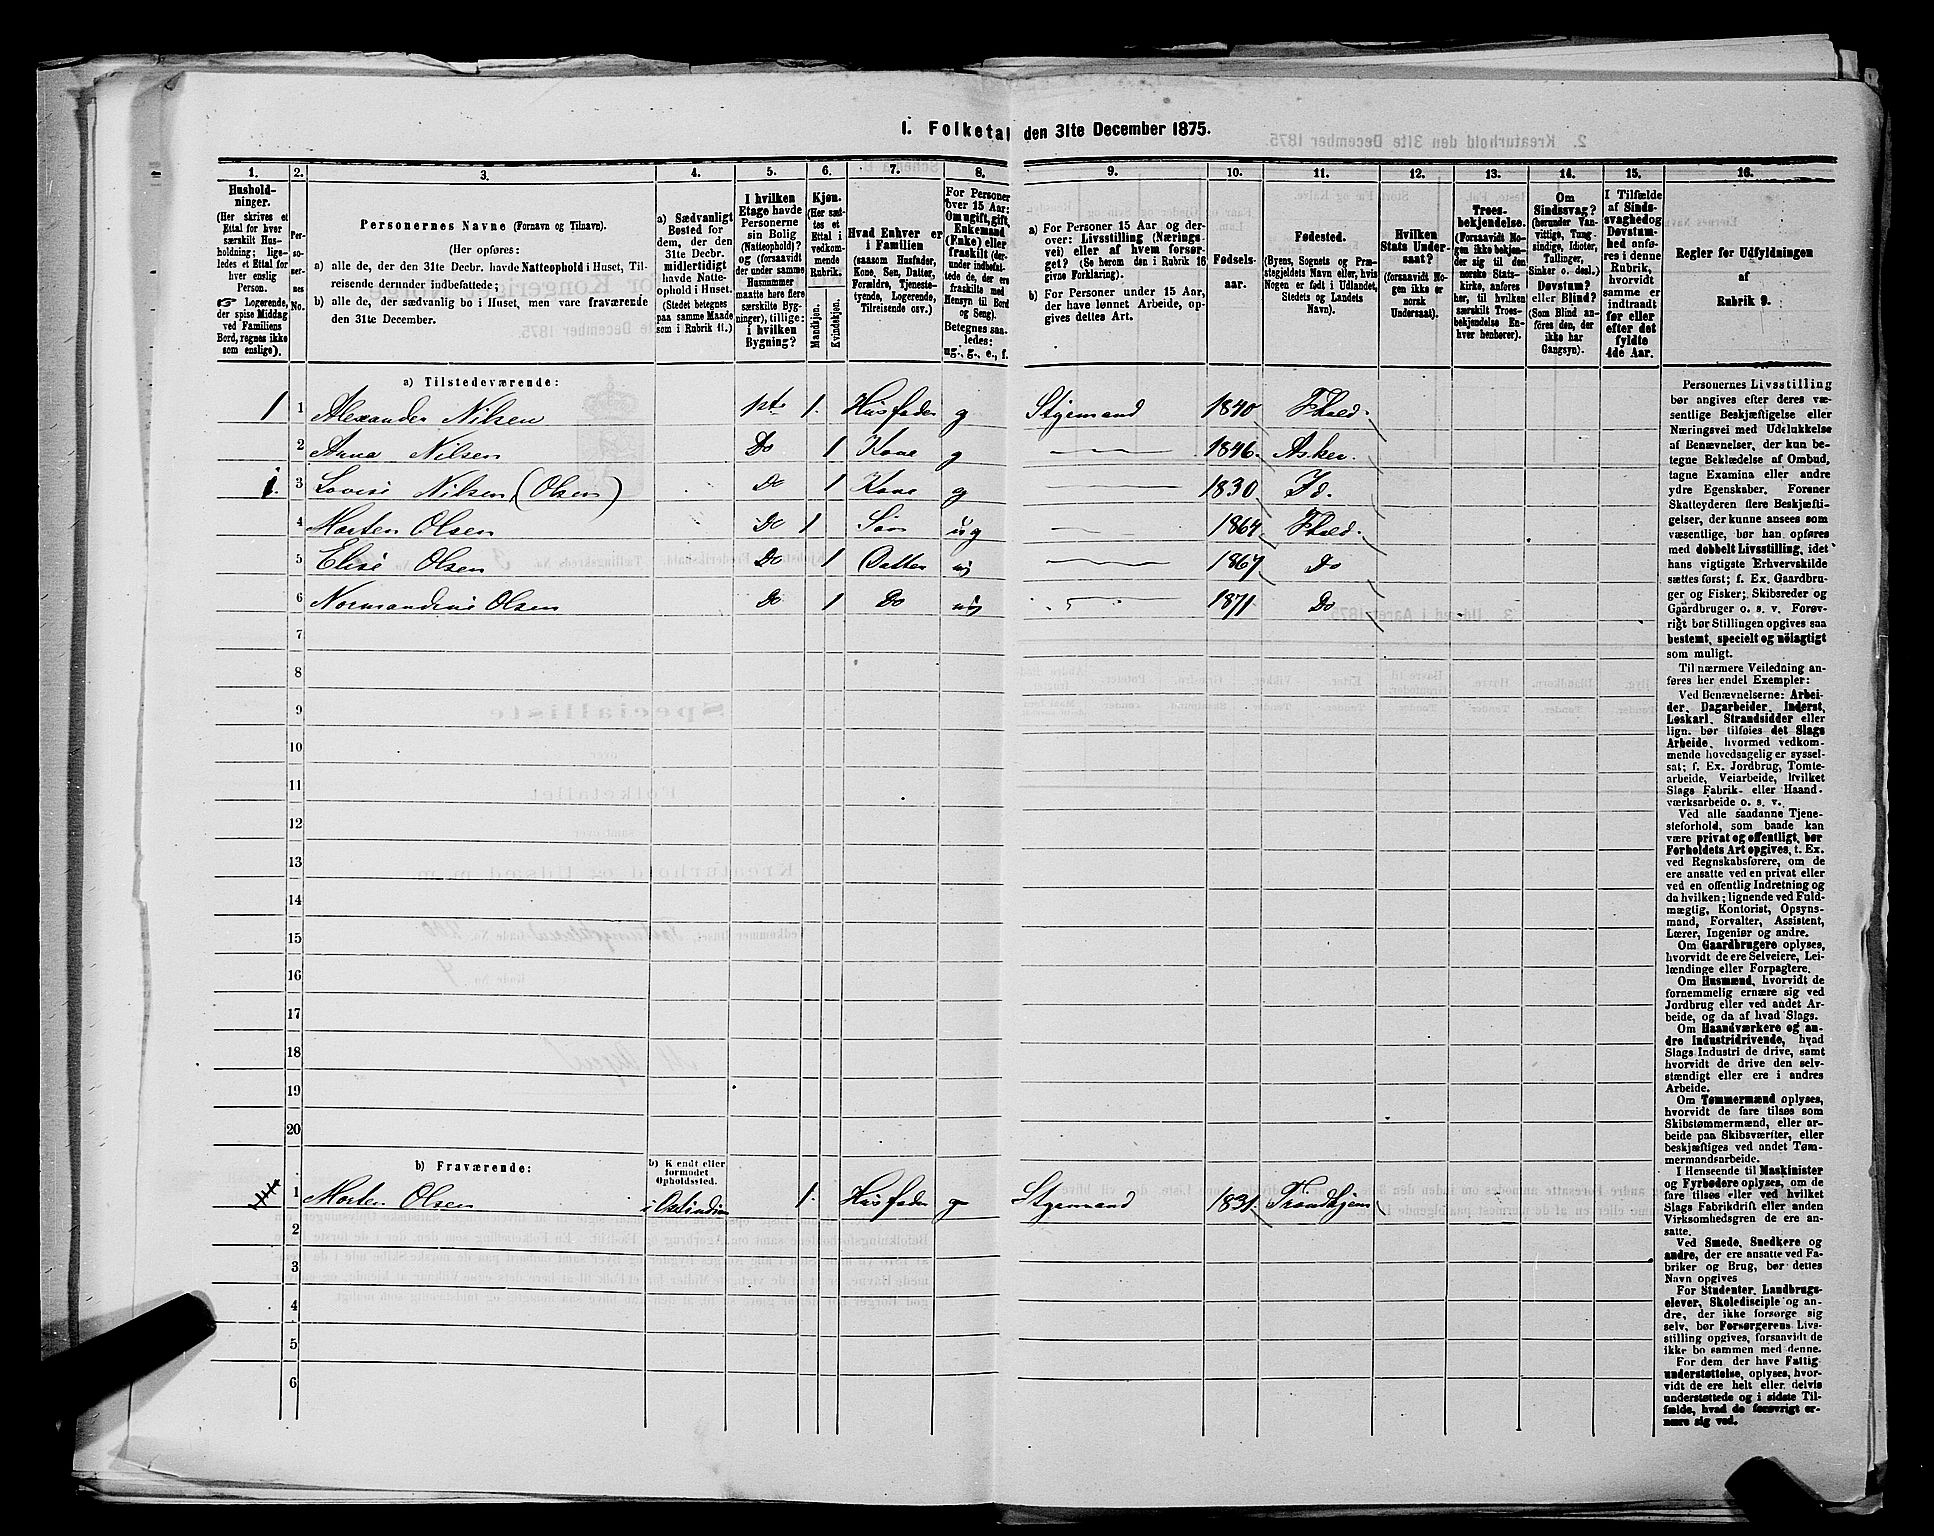 1. Folketal den 31te December 1875.
1. 2. 3. 4. 5. 6. 7. 8. 9. 10. 11. 12. 13. 14. 15. 16.
Hushold-
ninger.
(Her skrives et
Ettal for hver
særskilt Hus-
holdning; lige-
ledes et Ettal for
hver enslig
Person.
☞ Logerende,
der spise Middag
ved Familiens
Bord, regnes ikke
som enslige).
Per-
so-
ner-
nes
No.
Personernes Navne (Fornavn og Tilnavn).
(Her opføres:
a) alle de, der den 31te Decbr. havde Natteophold i Huset, Til-
reisende derunder indbefattede;
b) alle de, der sædvanlig bo i Huset, men vare fraværende
den 31te December.
a) Sædvanligt
Bosted for
dem, der den
31te Decbr.
midlertidigt
havde Natte-
ophold i Huset.
(Stedet betegnes
paa samme Maade
som i Rubrik 11.)
I hvilken
Etage havde
Personerne
sin Bolig
(Natteophold)?
og (forsaavidt
der under samme
Husnummer
maatte høre flere
særskilte Byg-
ninger), tillige:
i hvilken
Bygning?
Kjøn.
(Her sæt-
tes et
Ettal i
vedkom-
mende
Rubrik.
Mandkjøn.
Kvindekjøn.
Hvad Enhver er
i Familien
(saasom Husfader,
Kone, Søn, Datter,
Forældre, Tjeneste-
tyende, Logerende,
Tilreisende osv.)
For Personer
over 15 Aar:
Om ugift, gift,
Enkemand
(Enke) eller
fraskilt (der-
under indbefat-
tede de, der ere
fraskilte med
Hensyn til Bord
og Seng).
Betegnes saa-
ledes:
ug., g., e., f.
a) For Personer 15 Aar og der-
over: Livsstilling (Nærings-
vei) eller af hvem forsør-
get? (Se herom den i Rubrik 16
givne Forklaring).
b) For Personer under 15 Aar,
der have lønnet Arbeide, op-
gives dettes Art.
Fødsels-
aar.
Fødested.
(Byens, Sognets og Præ-
stegjeldets Navn eller, hvis
Nogen er født i Udlandet,
Stedets og Landets
Navn).
Hvilken
Stats Under-
saat?
(forsaavidt
Nogen ikke er
norsk
Undersaat).
Troes-
bekjendelse.
(Forsaavidt No-
gen ikke bekjen-
der sig til den
norske Stats-
kirke, anføres
her, til hvilken
særskilt Troes-
bekjendelse En-
hver henhører).
Om
Sindssvag?
(herunder Van-
vittige, Tung-
sindige, Idioter,
Tullinger,
Sinker o. desl.)
Døvstum?
eller Blind?
(Som Blind an-
føres den, der
ikke har
Gangsyn).
I Tilfælde
af Sinds-
svaghed og
Døvstum-
hed anfø-
res i denne
Rubrik,
hvorvidt
samme er
indtraadt
før eller
efter det
fyldte
4de Aar.
Regler for Udfyldningen
af
Rubrik 9.
a) Tilstedeværende:
1 1 Alexander Nilsen 1ste 1. Husfader g Styrmand 1840 Fhald.
2 Anna Nilsen Do 1 Kone g 1846 Asker.
1. 3 Lovise Nilsen (Olsen) Do 1 Kone g 1830 Id.
4 Morten Olsen Do 1 Søn ug 1864 Fhald.
5 Elise Olsen Do 1 Datter ug 1867 Do
6 Normandine Olsen Do 1 Do ug 1871 Do
7
8
9
10
11
12
13
14
15
16
17
18
19
20
b) Fraværende:
b) Kjendt eller
formodet
Opholdssted.
1 Morten Olsen i Ostindien 1. Husfader g Styrmand 1831. Trondhjem
2
3
4
5
6
Personernes Livsstilling
bør angives efter deres væ-
sentlige Beskjæftigelse eller
Næringsvei med Udelukkelse
af Benævnelser, der kun be-
tegne Beklædelse af Ombud,
tagne Examina eller andre
ydre Egenskaber. Forener
Skatteyderen flere Beskjæfti-
gelser, der kunne ansees som
væsentlige, bør han opføres
med dobbelt Livsstilling, idet
hans vigtigste Erhvervskilde
sættes først; f. Ex. Gaardbru-
ger og Fisker; Skibsreder og
Gaardbruger o. s. v. Forøv-
rigt bør Stillingen opgives saa
bestemt, specielt og nøiagtigt
som muligt.
Til nærmere Veiledning an-
føres her endel Exempler:
Ved Benævnelserne: Arbei-
der, Dagarbeider, Inderst,
Løskarl, Strandsidder eller
lign. bør tilføies det Slags
Arbeide, hvormed vedkom-
mende hovedsagelig er syssel-
sat; f. Ex. Jordbrug, Tomte-
arbeide, Veiarbeide, hvilket
Slags Fabrik- eller Haand-
værksarbeide o. s. v.
Ved alle saadanne Tjene-
steforhold, som baade kan
være privat og offentligt, bør
Forholdets Art opgives, t. Ex.
ved Regnskabsførere, om de
ere ansatte ved en privat eller
ved en offentlig Indretning og
da hvilken; lignende ved Fuld-
mægtig, Kontorist, Opsyns-
mand, Forvalter, Assistent,
Lærer, Ingeniør og andre.
Om Gaardbrugere oplyses,
hvorvidt de ere Selveiere, Lei-
lændinge eller Forpagtere.
Om Husmænd, hvorvidt de
fornemmelig ernære sig ved
Jordbrug eller ved andet Ar-
beide, og da af hvad Slags.
Om Haandværkere og an-
dre Industridrivende, hvad
Slags Industri de drive, samt
hvorvidt de drive den selv-
stændigt eller ere i andres
Arbeide.
Om Tømmermænd oplyses,
hvorvidt de fare tilsøs som
Skibstømmermænd, eller ar-
beide paa Skibsværfter, eller
beskjæftiges ved andet Tøm-
mermandsarbeide.
I Henseende til Maskinister
og Fyrbødere oplyses, om de
fare tilsøs eller ved hvilket
Slags Fabrikdrift eller anden
Virksomhedsgren de ere an-
satte.
Ved Smede, Snedkere og
andre, der ere ansatte ved Fa-
briker og Brug, bør dettes
Navn opgives
For Studenter, Landbrugs-
elever, Skoledisciple og an-
dre, der ikke forsørge sig
selv, bør Forsørgerens Livs-
stilling opgives, forsaavidt de
ikke bo sammen med denne.
For dem, der have Fattig-
understøttelse, oplyses, hvor-
vidt de ere helt eller delvis
understøttede og i sidste Til-
fælde, hvad de forøvrigt er-
nære sig ved.